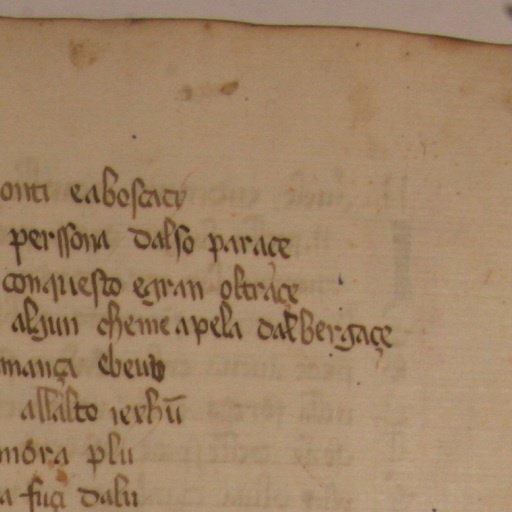 onti e aboscaty
perssona dalso parace
conquesto egran oltraçe
algun cheme apela dalbergaçe
mança ebeuo
allalto iexhũ
mora plu
a fuçi dalu